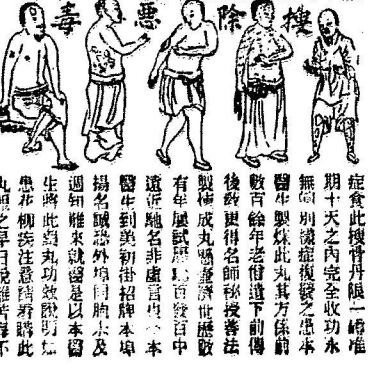 搜除惡毒
症食此搜骨丹限一禮准
期十天之內完全收功永
無別症復發之患本
醫生製煉此丸其方係前
數百餘年老遺下前傳
後更得名師秘授善法
製成丸懸壺濟世歷數
有年屢試屢驗百發百中
遠近馳名非虛言也本
醫生到美初掛招牌本埠
揚名誠恐外埠同胞未及
週知難來就醫是以本醫
生將此藥丸功效說明如
患花柳疾注意請購此
丸服之早日脫離苦海不